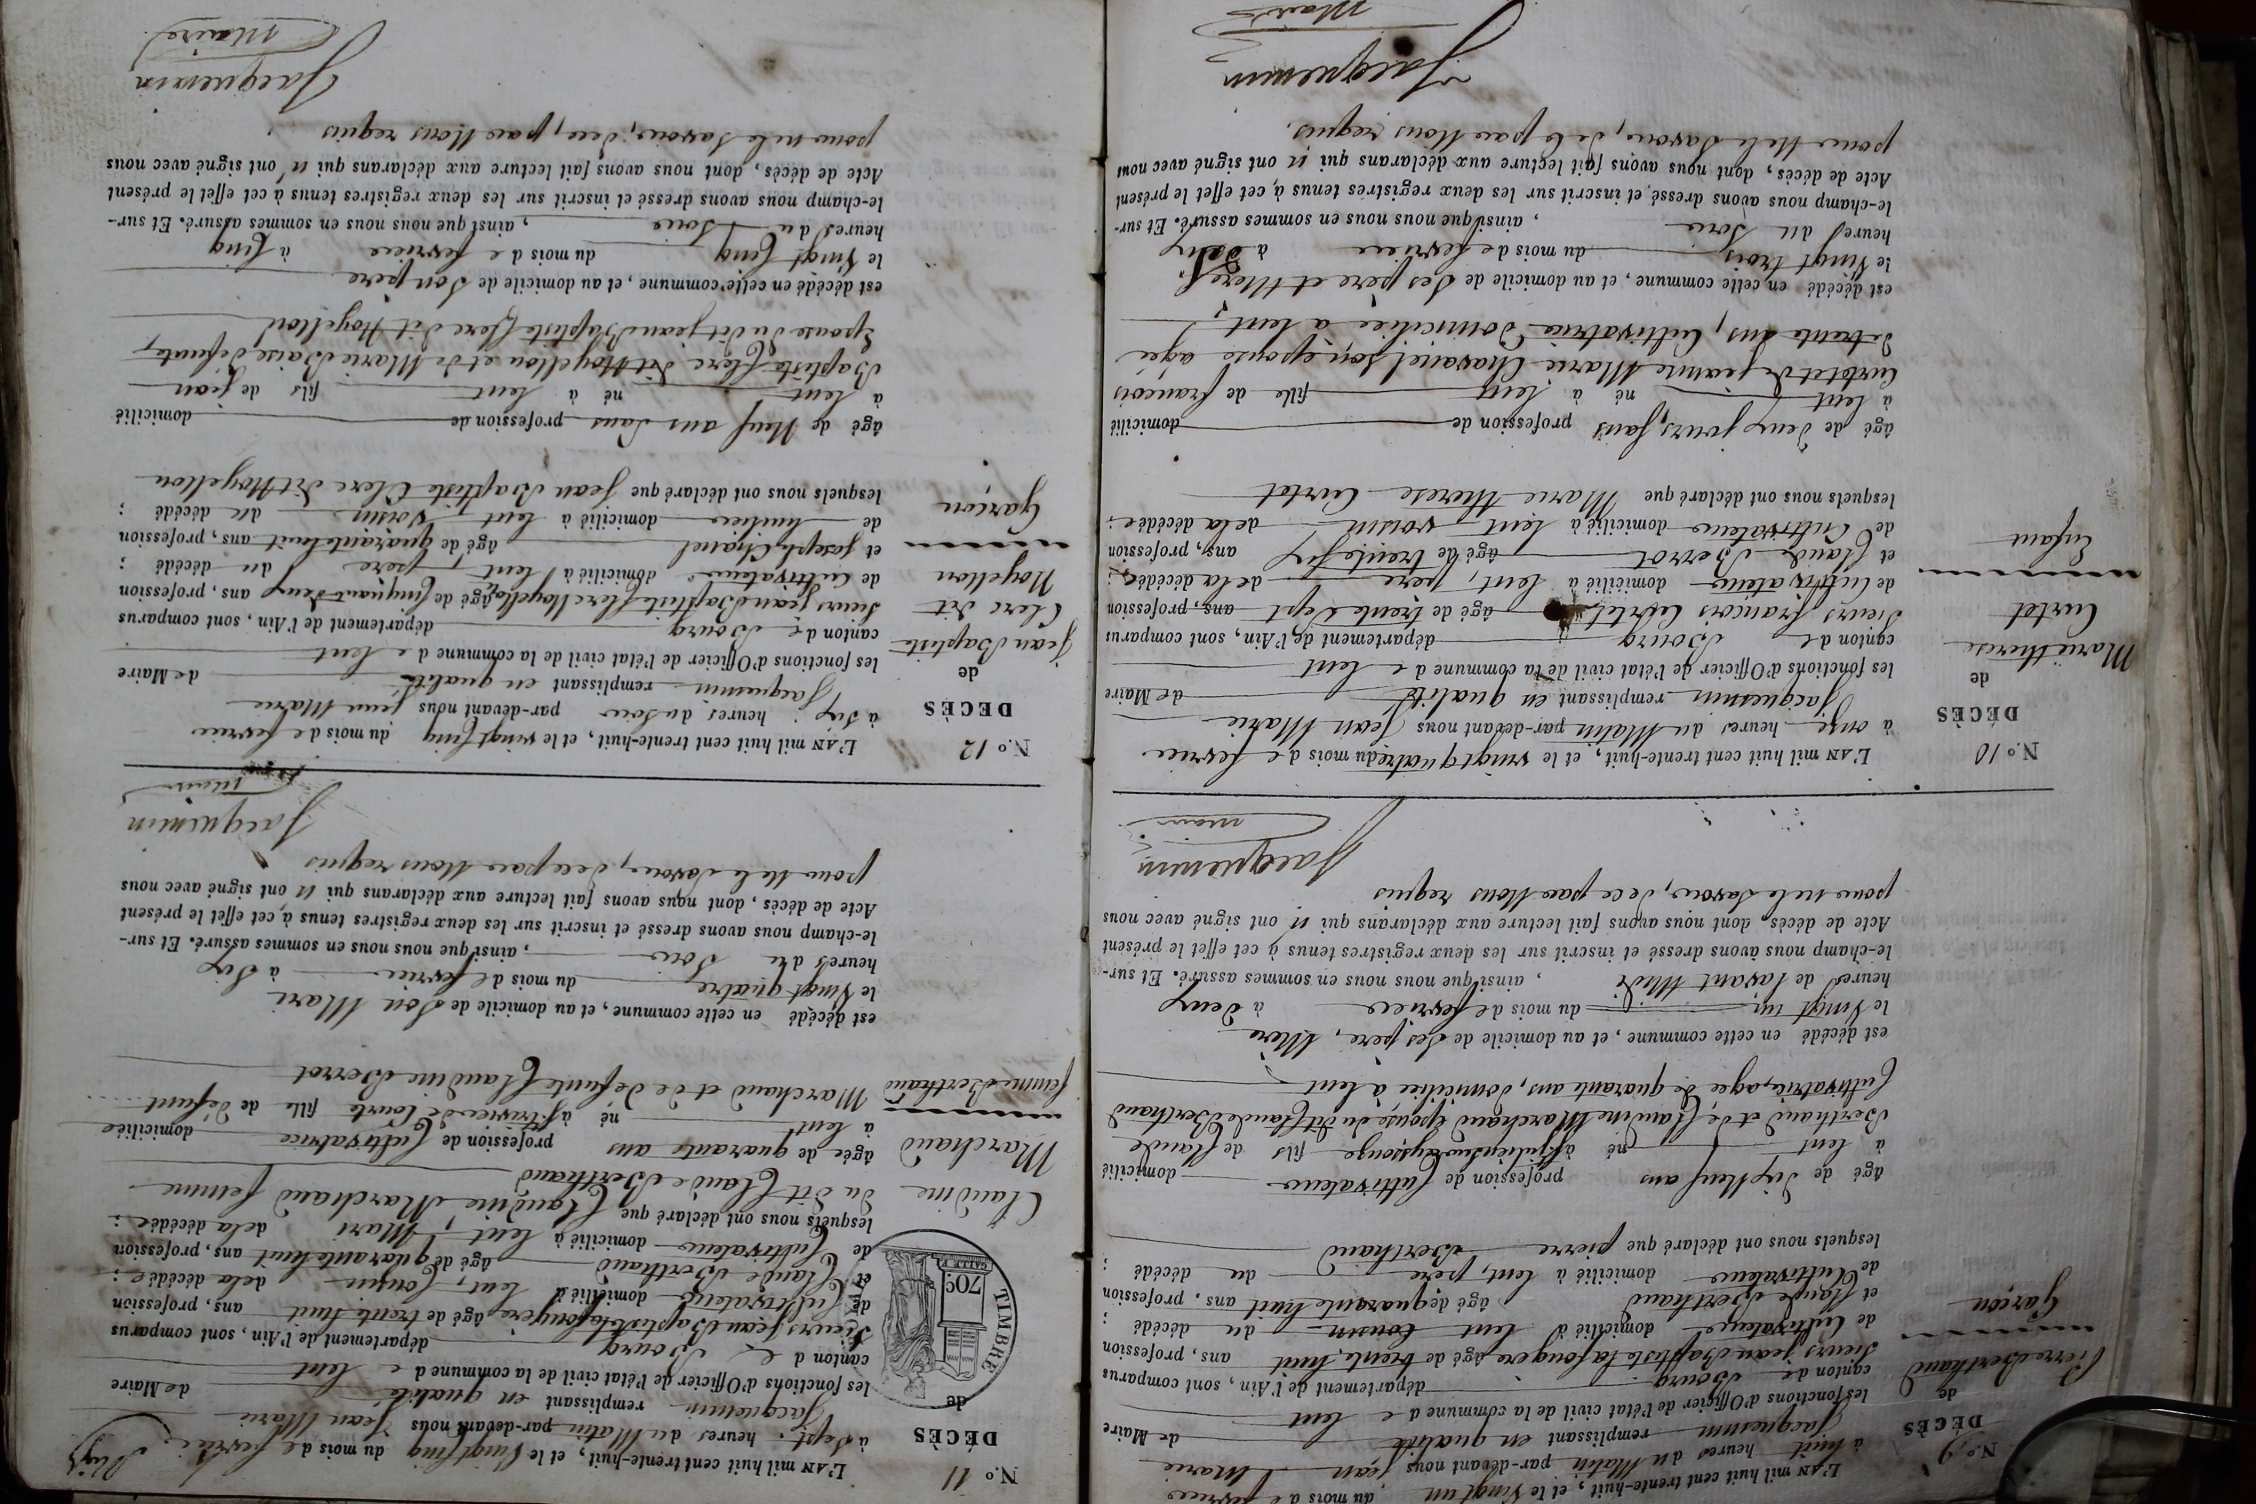 N.º 9
DÉCÈS
de
Pierre Berthaud
Garçon
L'AN mil huit cent trente-huit, et le vingt un du mois de fevrier
à huit heures du Matin par-devant nous jean Marie
Jacquemin remplissant en qualité de Maire
les fonctions d'Officier de l'état civil de la commune de lent
canton de Bourg département de l'Ain, sont comparus
sieurs jean Baptiste lafongère âgé de trente huit ans, profession
de Cultivateur domicilié à lent cousin du décédé ;
et Claude Berthaud âgé de quarante huit ans, profession
de Cultivateur domicilié à lent, pere du décédé ;
lesquels nous ont déclaré que pierre Berthaud
âgé de dix Neuf ans profession de Cultivateur domicilié
à lent né à st julien sur Reyssouze fils de Claude
Berthaud et de Claudine Marchand épouse du dit Claude Berthaud
Cultivatrice, agee de quarante ans, domiciliée à lent
est décédé en cette commune, et au domicile de ses père, Mère
le vingt un du mois de fevrier à deux
heures de l'avant Midi, ainsi que nous nous en sommes assuré. Et sur-
le-champ nous avons dressé et inscrit sur les deux registres tenus à cet effet le présent
Acte de décès, dont nous avons fait lecture aux déclarans qui n'ont signé avec nous
pour ne le savoir, de ce par Nous requis
Jacquemin
maire
N.º 10
DÉCÈS
de
Marie therese
Curtet
Enfant
L'AN mil huit cent trente-huit, et le vingt quatre du mois de fevrier
à onze heures du Matin par-devant nous Jean Marie
Jacquemin remplissant en qualité de Maire
les fonctions d'Officier de l'état civil de la commune de lent
canton de Bourg département de l'Ain, sont comparus
sieurs francois Curtet âgé de trente sept ans, profession
de Cultivateur domicilié à lent, pere de la décédée ;
et Claude Berrot âgé de trente six ans, profession
de Cultivateur domicilié à lent voisin de la décédée ;
lesquels nous ont déclaré que Marie therese Curtet
âgé de deux jours, sans profession de domicilié
à lent né à lent fille de francois
Curtet et de jeanne Marie Chavanel son épouse agée
de trente ans, Cultivatrice domiciliée à lent,
est décédé en cette commune, et au domicile de ses père et Mere
le vingt trois du mois de fevrier à dix
heures du soir, ainsi que nous nous en sommes assuré. Et sur-
le-champ nous avons dressé et inscrit sur les deux registres tenus à cet effet le présent
Acte de décès, dont nous avons fait lecture aux déclarans qui n'ont signé avec nous
pour Ne le savoir, de ce par Nous requis.
Jacquemin
Maire
N.º 11
DÉCÈS
de
TIMBRE
70C.
Claudine
Marchand
femme Berthaud
L'AN mil huit cent trente-huit, et le vingt cinq du mois de fevrier
à sept heures du Matin par-devant nous jean Marie
Jacquemin remplissant en qualité de Maire
les fonctions d'Officier de l'état civil de la commune de lent
canton de Bourg département de l'Ain, sont comparus
sieurs jean Baptiste lafongère âgé de trente huit ans, profession
de Cultivateur domicilié à lent, Cousin de la décédée ;
et Claude Berthaud âgé de quarante huit ans, profession
de Cultivateur domicilié à lent, Mari de la décédée ;
lesquels nous ont déclaré que Claudine Marchand femme
du dit Claude Berthaud
âgée de quarante ans profession de Cultivatrice domiciliée
à lent né à st trivier de Courte fille de défunt
Marchand et de defunte Claudine Berrot
est décédé en cette commune, et au domicile de son Mari
le vingt quatre du mois de fevrier à six
heures du soir, ainsi que nous nous en sommes assuré. Et sur-
le-champ nous avons dressé et inscrit sur les deux registres tenus à cet effet le présent
Acte de décès, dont nous avons fait lecture aux déclarans qui n'ont signé avec nous
pour Ne le savoir, de ce par Nous requis
Jacquemin
Maire
N.º 12
DÉCÈS
de
Jean Baptiste
Clerc dit
Noyellon
Garçon
L'AN mil huit cent trente-huit, et le vingt cinq du mois de fevrier
à six heures du soir par-devant nous jean Marie
Jacquemin remplissant en qualité de Maire
les fonctions d'Officier de l'état civil de la commune de lent
canton de Bourg département de l'Ain, sont comparus
sieurs jean Baptiste Clerc Noyellon âgé de Cinquante deux ans, profession
de Cultivateur domicilié à lent, pere du décédé ;
et joseph Chanel âgé de quarante huit ans, profession
de huilier domicilié à lent, voisin du décédé ;
lesquels nous ont déclaré que Jean Baptiste Clerc dit Noyellon
âgé de Neuf ans sans profession de domicilié
à lent né à lent fils de jean
Baptiste Clerc dit Noyellon et de Marie Baise défunte,
Epouse du dit jean Baptiste Clerc dit Noyellon
est décédé en cette commune, et au domicile de son pere
le vingt Cinq du mois de fevrier à Cinq
heures du soir, ainsi que nous nous en sommes assuré. Et sur-
le-champ nous avons dressé et inscrit sur les deux registres tenus à cet effet le présent
Acte de décès, dont nous avons fait lecture aux déclarans qui n'ont signé avec nous
pour ne le savoir, de ce, par Nous requis
Jacquemin
Maire